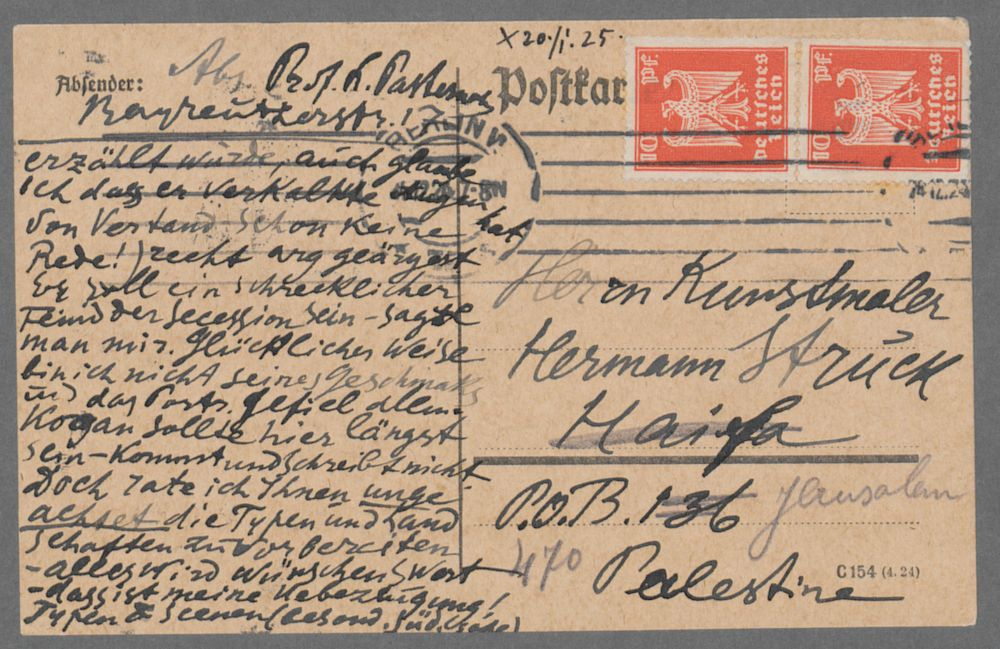 x 20./I. 25.
Absender: Abs. Prof. L. Pasternak
Bayreutherstr. 1
Postkar
10 Pf.
Deutsches Reich
10 Pf.
Deutsches Reich
BERLIN W
7-8N
erzählt wurde, auch glaube
ich dass er verkalkte Augen hat,
von Verstand schon keine
Rede!) recht arg geärgert
Er soll ein schrecklicher
Feind der Secession sein - sagte
man mir. Glücklicher weise
bin ich nicht seines Geschmaks
und das Portr. gefiel allen.
Kogan sollte hier längst
sein - kommt und schreibt nicht
Doch rate ich Ihnen unge
achtet die Typen und Land
schaften zu vorbereiten
- alles wird wünschenswert
- dass ist meine Uebezeugung!
Typen & Scenen (besond. Süd.
Herrn Kunstmaler
Hermann Struck
Haifa
P.O.B. 136 Jerusalem
470
Palestine
C 154 (4. 24)